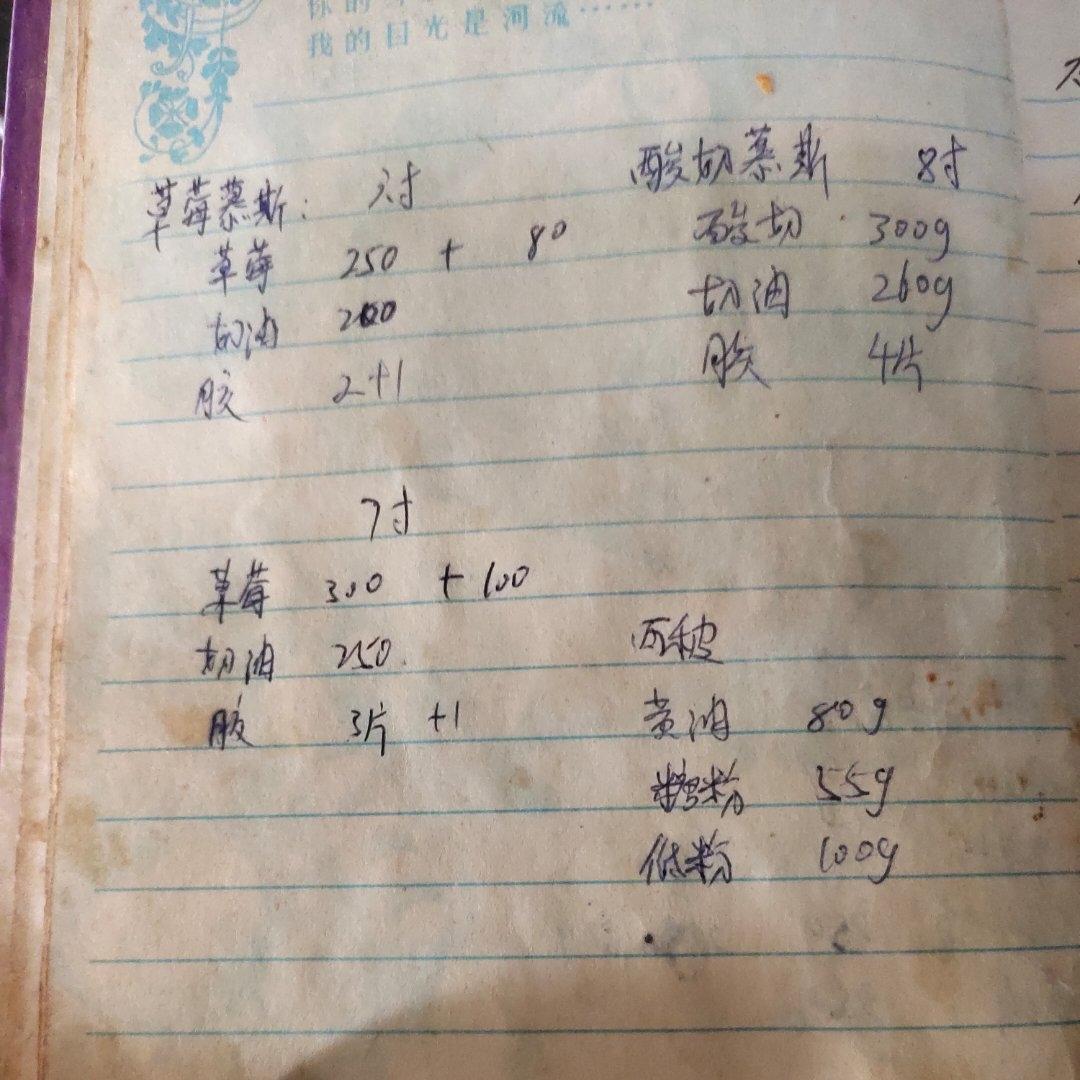 你的
我的目光是河流……
草莓慕斯： 六寸
草莓 250 + 80
奶油 200
胶 2+1
7寸
草莓 300 +100
奶油 250
胶 3片 +1
酸奶慕斯 8寸
酸奶 300g
奶油 260g
胶 4片
黄油 80g
糖粉 55g
低粉 100g